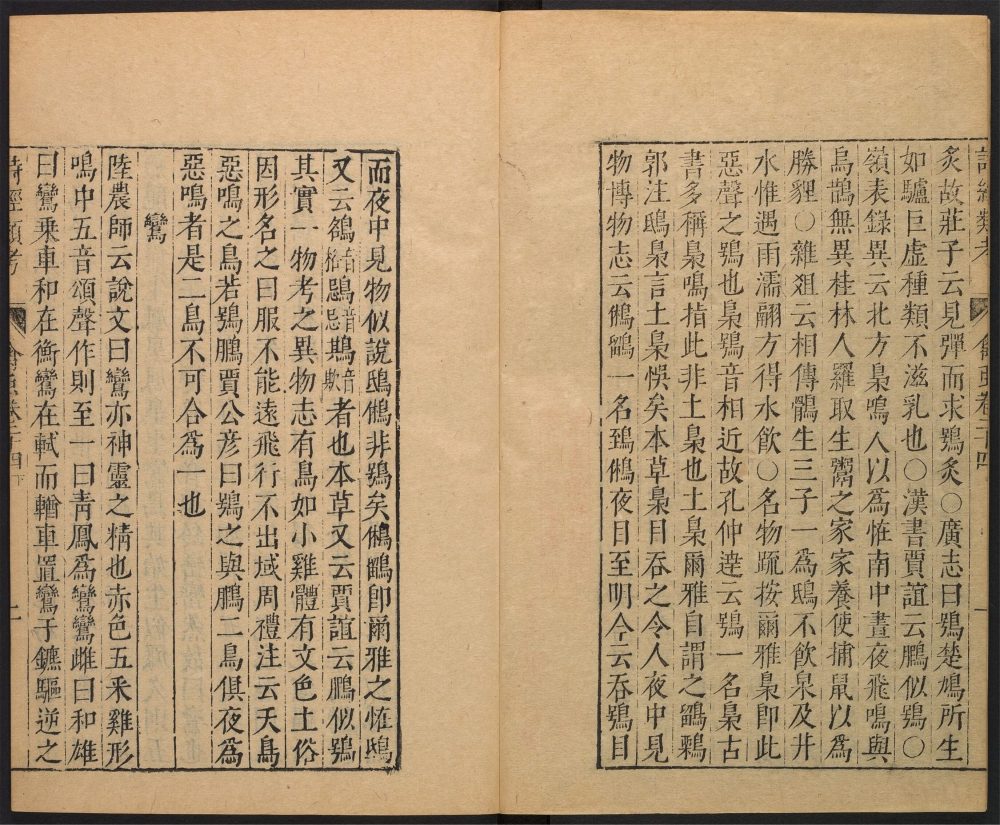 炙故莊子云見彈而求鴞炙○廣志曰鴞楚鳩所生
如驢巨虛種類不滋乳也○漢書賈誼云鵩似鴞○
嶺表錄異云北方梟鳴人以爲恠南中晝夜飛鳴與
烏鵲無異桂林人羅取生鬻之家家養使捕鼠以爲
勝貍○雜俎云相傳鶻生三子一爲鴟不飲泉及井
水惟遇雨濡翮方得水飲○名物疏按爾雅梟卽此
惡聲之鴞也梟鴞音相近故孔仲逹云鴞一名梟古
書多稱梟鳴指此非土梟也土梟爾雅自謂之鶹鷅
郭注鴟梟言土梟悞矣本草梟目吞之令人夜中見
物博物志云鵂鶹一名鵄鵂夜目至明今云吞鴞目
詩經類考
禽蟲卷二十四
一
而夜中見物似說鴟鵂非鴞矣鵂鶹卽爾雅之恠鴟
又云鵅音格鶝忌鵙音欺者也本草又云賈誼云鵩似鴞
其實一物考之異物志有鳥如小雞體有文色土俗
因形名之曰服不能遠飛行不出域周禮注云夭鳥
惡鳴之鳥若鴞鵩賈公彥曰鴞之與鵩二鳥俱夜爲
惡鳴者是二鳥不可合爲一也
鸞
陸農師云說文曰鸞亦神靈之精也赤色五采雞形
鳴中五音頌聲作則至一曰青鳳爲鸞鸞雌曰和雄
曰鸞乘車和在衡鸞在軾而輶車置鸞于鑣驅逆之
詩經類考
禽蟲卷二十四下